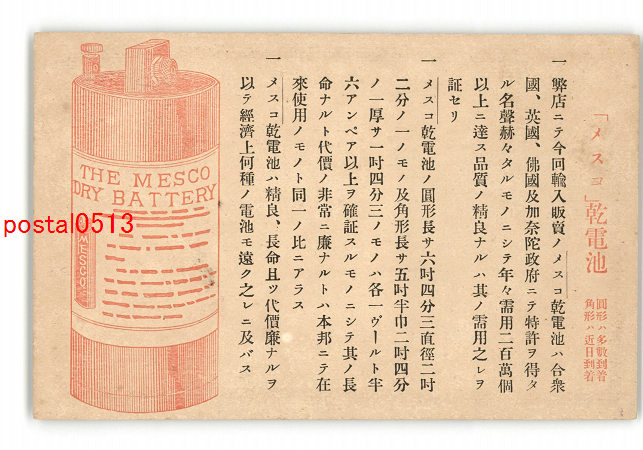 「メスコ」乾電池
圓形ハ多數到着
角形ハ近日到着
一 弊店ニテ今回輸入販賣ノメスコ乾電池ハ合衆
國、英國、佛國及加奈陀政府ニテ特許ヲ得タ
ル名聲赫々タルモノニシテ年々需用二百萬個
以上ニ達ス品質ノ精良ナルハ其ノ需用之レヲ
証セリ
一 メスコ乾電池ノ圓形長サ六吋四分三直徑二吋
二分ノ一ノモノ及角形長サ五吋半巾二吋四分
ノ一厚サ一吋四分三ノモノハ各一ヴールト半
六アンペア以上ヲ確証スルモノニシテ其ノ長
命ナルト代價ノ非常ニ廉ナルトハ本邦ニテ在
來使用ノモノト同一ノ比ニアラス
一 メスコ乾電池ハ精良、長命且ツ代價廉ナルヲ
以テ經濟上何種ノ電池モ遠ク之レニ及バス
THE MESCO
DRY BATTERY
MESCO
postal0513